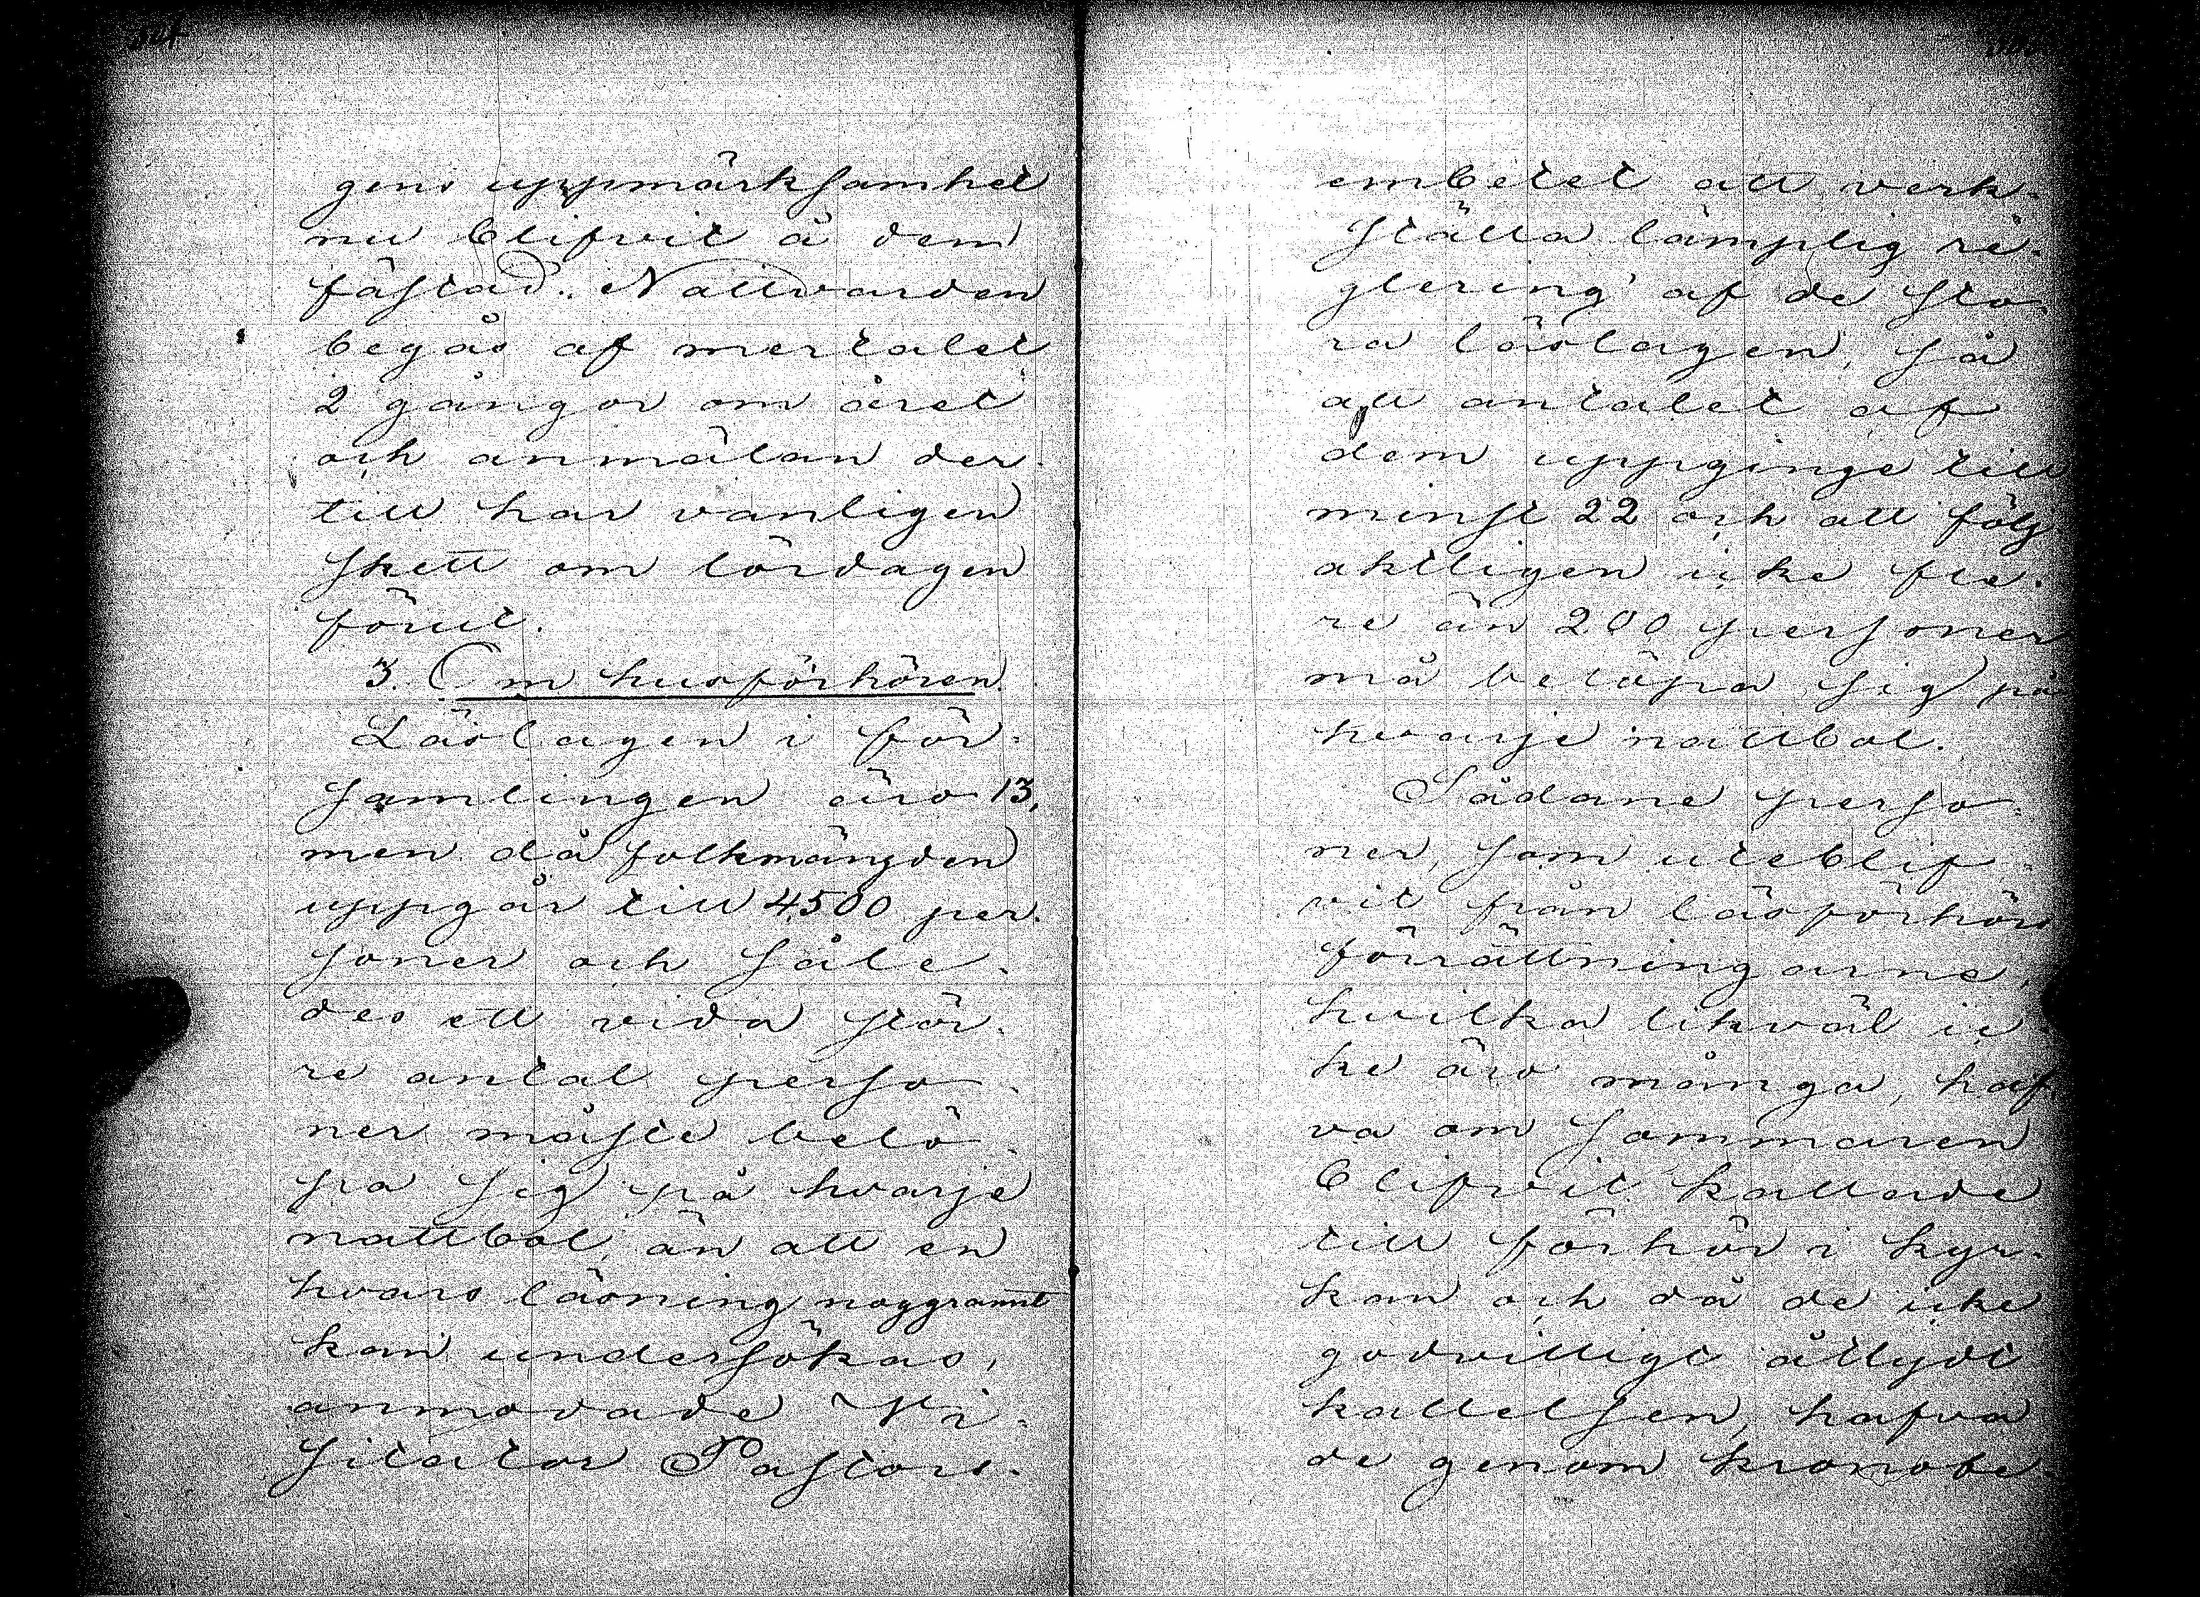 gens uppmärksamhet
nu blifvit å dem
fästad. Nattvarden
begås af mertalet
2 gångor om året
och anmälan der-
till har vanligen
skett om lördagen
förut.
3. Om husförhören.
Läslagen i för-
samlingen äro 13,
men då folkmängden
uppgår till 4,500 per-
soner och såle-
des ett vida stör-
re antal perso-
ner måste belö-
pa sig på hvarje
nattbol, än att en
hvars läsning noggrannt
kan undersökas,
anmodade Vi-
sitator Pastors-
embetet att verk-
ställa lämplig re-
glering af de sto-
ra läslagen, så
att antalet af
dem uppginge till
minst 22 och att följ
aktligen icke fle-
re än 200 personer
må belöpa sig på
hvarje nattbol.
Sådane perso-
ner, som uteblif-
vit från läsförhörs
förrättningarne,
hvilka likväl ic
ke äro många, haf
va om sommaren
blifvit kallade
till förhör i kyr-
kan och då de icke
godvilligt åtlydt
kallelsen, hafva
de genom kronobe-